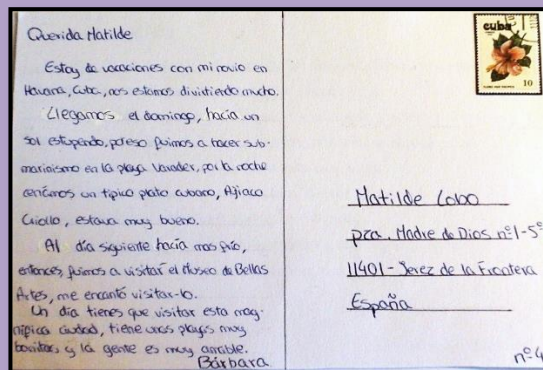 Querida Matilde
Estoy de vacaciones con mi novio en
Havana, Cuba, nos estamos divirtiendo mucho.
Llegamos el domingo, hacía un
sol estupendo, por eso fuimos a hacer sub-
marinismo en la playa Varader, por la noche
cenámos un típico plato cubano, Ajiaco
Criollo, estava muy bueno.
Al día siguiente hacía mas frío,
entonces, fuimos a visitar el Museo de Bellas
Artes, me encantó visitar-lo.
Un día tienes que visitar esta mag-
nífica ciudad, tiene unas playas muy
bonitas y la gente es muy amable.
Bárbara
cuba
10
Matilde Lobo
pza. Madre de Dios nº1-5º
11401-Jerez de la Frontera
España
nº4